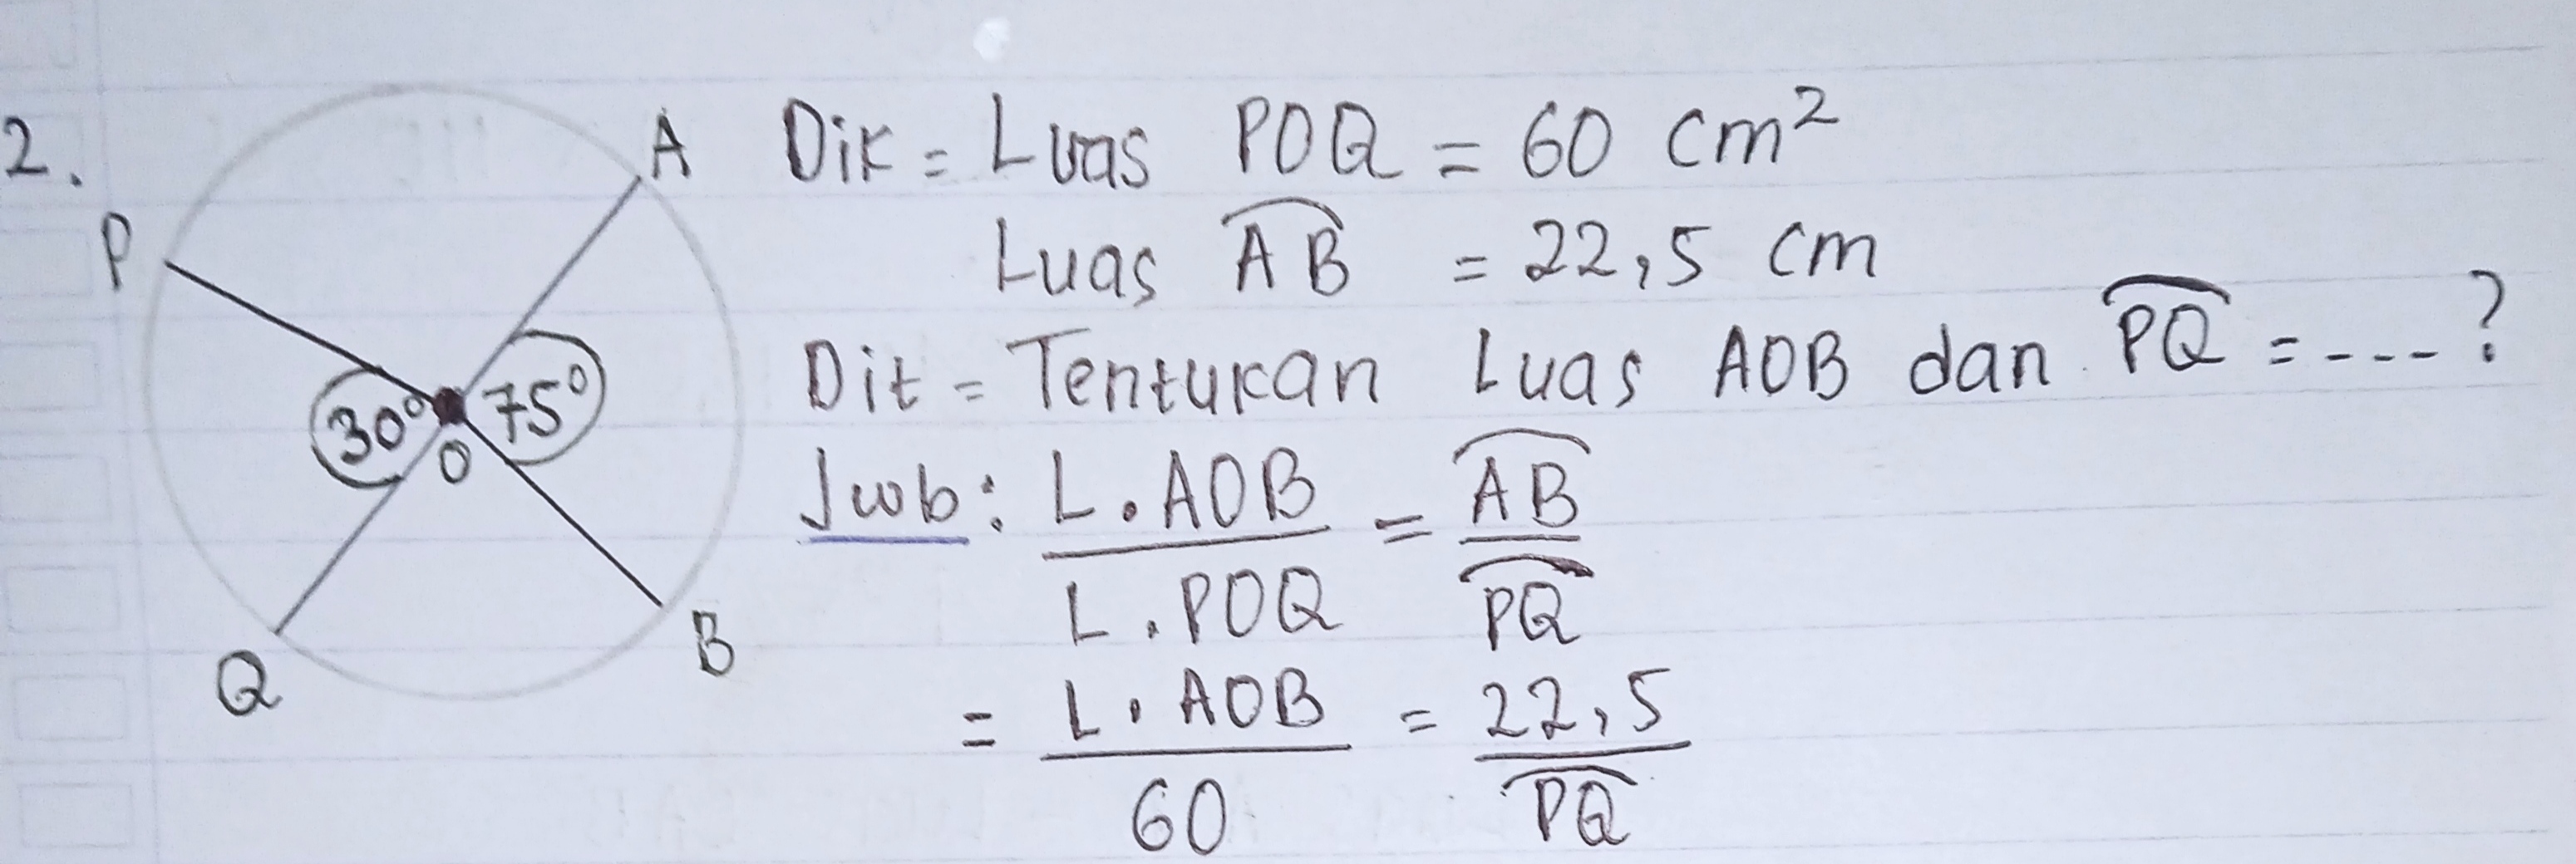 2.
A
P
30°
75°
O
Q
B
Dik = Luas POQ = 60 cm²
Luas A͡B = 22,5 cm
Dit = Tentukan Luas AOB dan P͡Q = ---- ?
Jwb : L . AOB / L . POQ = A͡B / P͡Q
= L . AOB / 60 = 22,5 / P͡Q